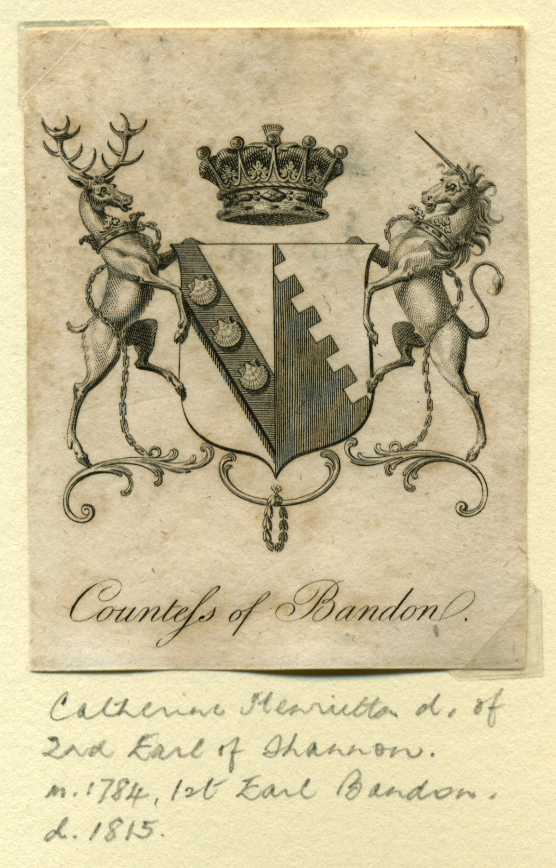 Counteſs of Bandon.
Catherine Henrietta d. of
2nd Earl of Shannon.
m. 1784, 1st Earl Bandon.
d. 1815.